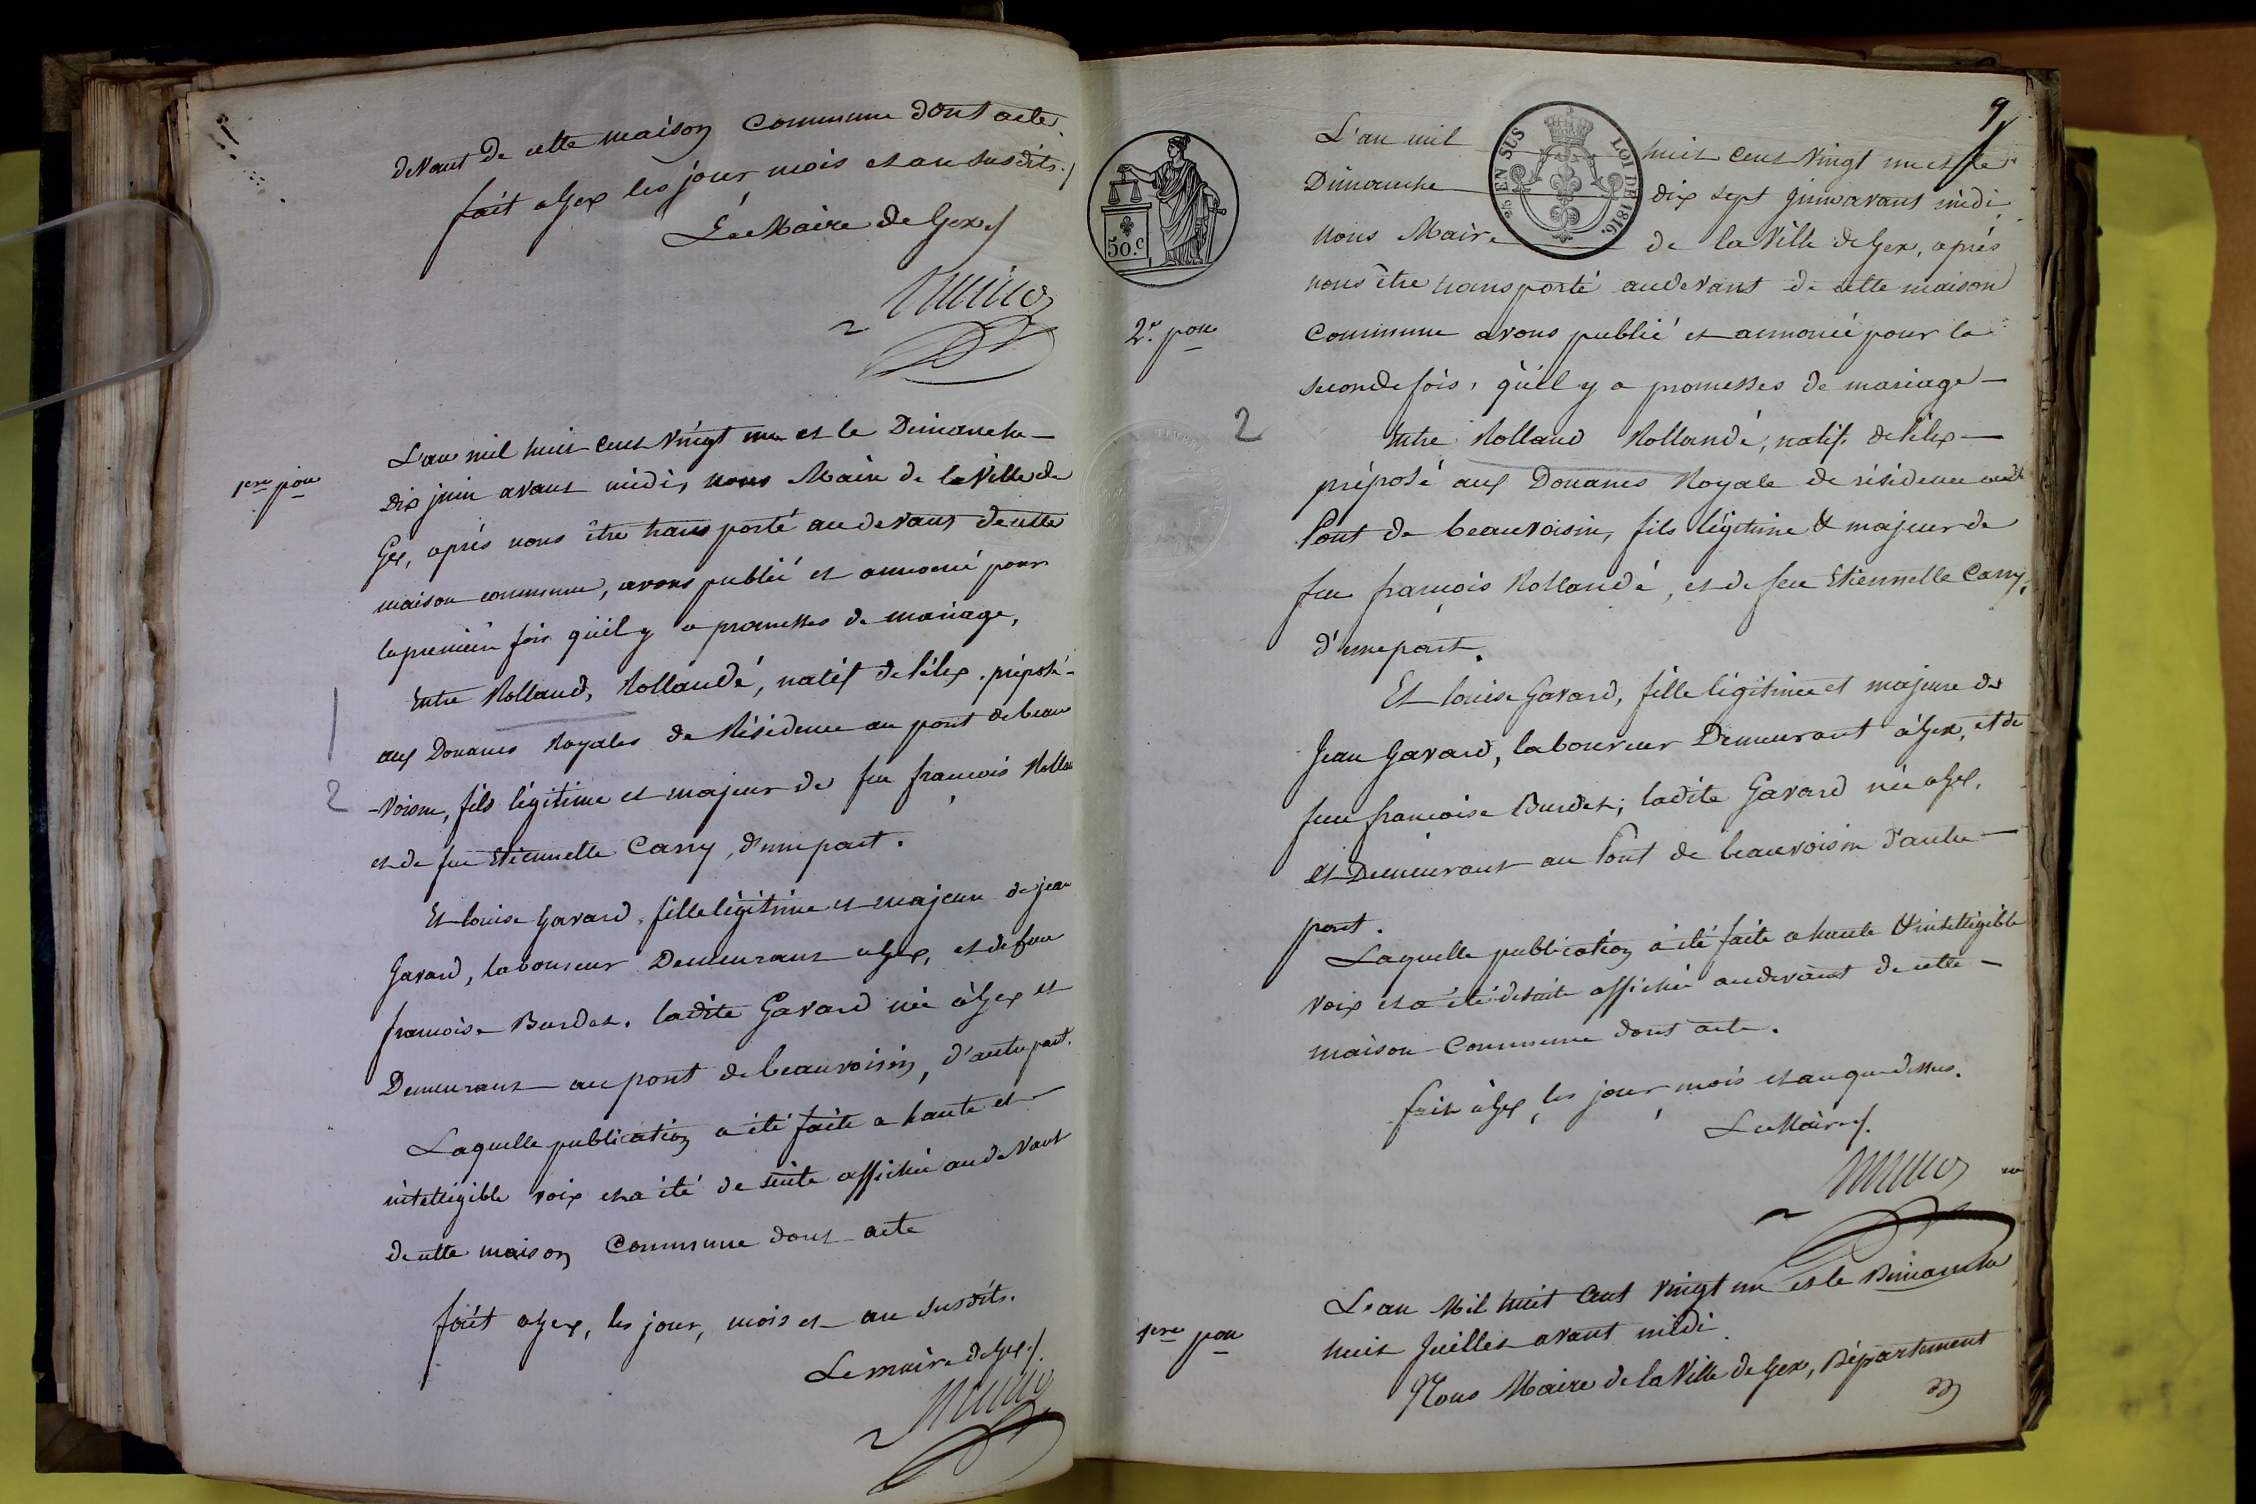 devant de cette maison Commune dont acte.
fait a Gex les jour mois et an susdits./
Le Maire de Gex /
1ere pon
L'an mil huit cent vingt un et le Dimanche —
Dix juin avant midi, nous Maire de la Ville de
Gex, après nous être transporté au devant de cette
maison commune, avons publié et annoncé pour
la premiere fois qu'il y a promesses de mariage,
Entre Rolland, Rollandé, natif de Lélex. préposé -
1
aux Douanes Royales de Résidence au pont de beau
2
-voisin, fils légitime et majeur de feu francois Rollan
et de feu Etiennette Carry, d'une part.
Et louise Gavard, fille légitime et majeure de jean
Gavard, laboureur Demeurant a Gex, et de feue
francoise Burdet. ladite Gavard née à Gex et
Demeurant au pont de beauvoisin, d'autre part.
Laquelle publication a été faite a haute et
intelligible voix et a été de suite affichée au devant
de cette maison Commune dont acte
fait a Gex, les jour, mois et an susdits.
Le maire de Gex /.
9
25c EN SUS
LOI DE 1816.
50.c
L'an mil huit cent vingt un et le
Dimanche dix sept juin avant midi
Nous Maire de la Ville de Gex, après
nous être transporté au devant de cette maison
2e. pon
Commune avons publié et annoncé pour la
seconde fois, qu'il y a promesses de mariage —
2
Entre Rolland Rollandé, natif de Lélex —
préposé aux Douanes Royale de résidence audt
Pont de beauvoisin, fils légitime & majeur de
feu françois Rollandé, et de feue Etiennette Carry,
d'une part.
Et louise Gavard, fille légitime et majeure de
Jean Gavard, laboureur Demeurant à Gex, et de
feue francoise Burdet; ladite Gavard née a Gex,
et Demeurant au Pont de beauvoisin d'autre —
part.
Laquelle publication a été faite a haute & intelligible
voix et a été de suite affichée au devant de cette —
maison Commune dont acte.
fait à Gex, les jour mois et an que dessus.
Le Maire /.
1ere pon
L'an Mil huit Cent vingt un et le Dimanche
huit Juillet avant midi
Nous Maire de la Ville de Gex, Département